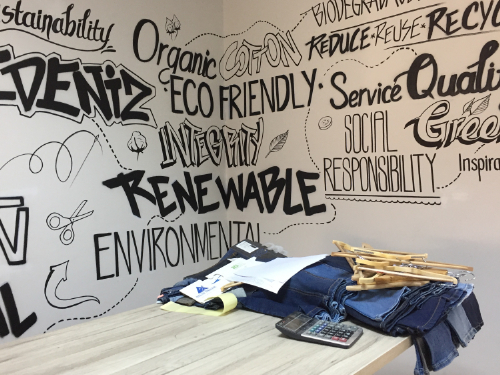 stainability
EDENIZ
Organic
COTTON
ECO FRIENDLY
INTEGRITY
RENEWABLE
ENVIRONMENTAL
REDUCE REUSE RECY
Service Quali
Green
SOCIAL
RESPONSIBILITY
Inspira